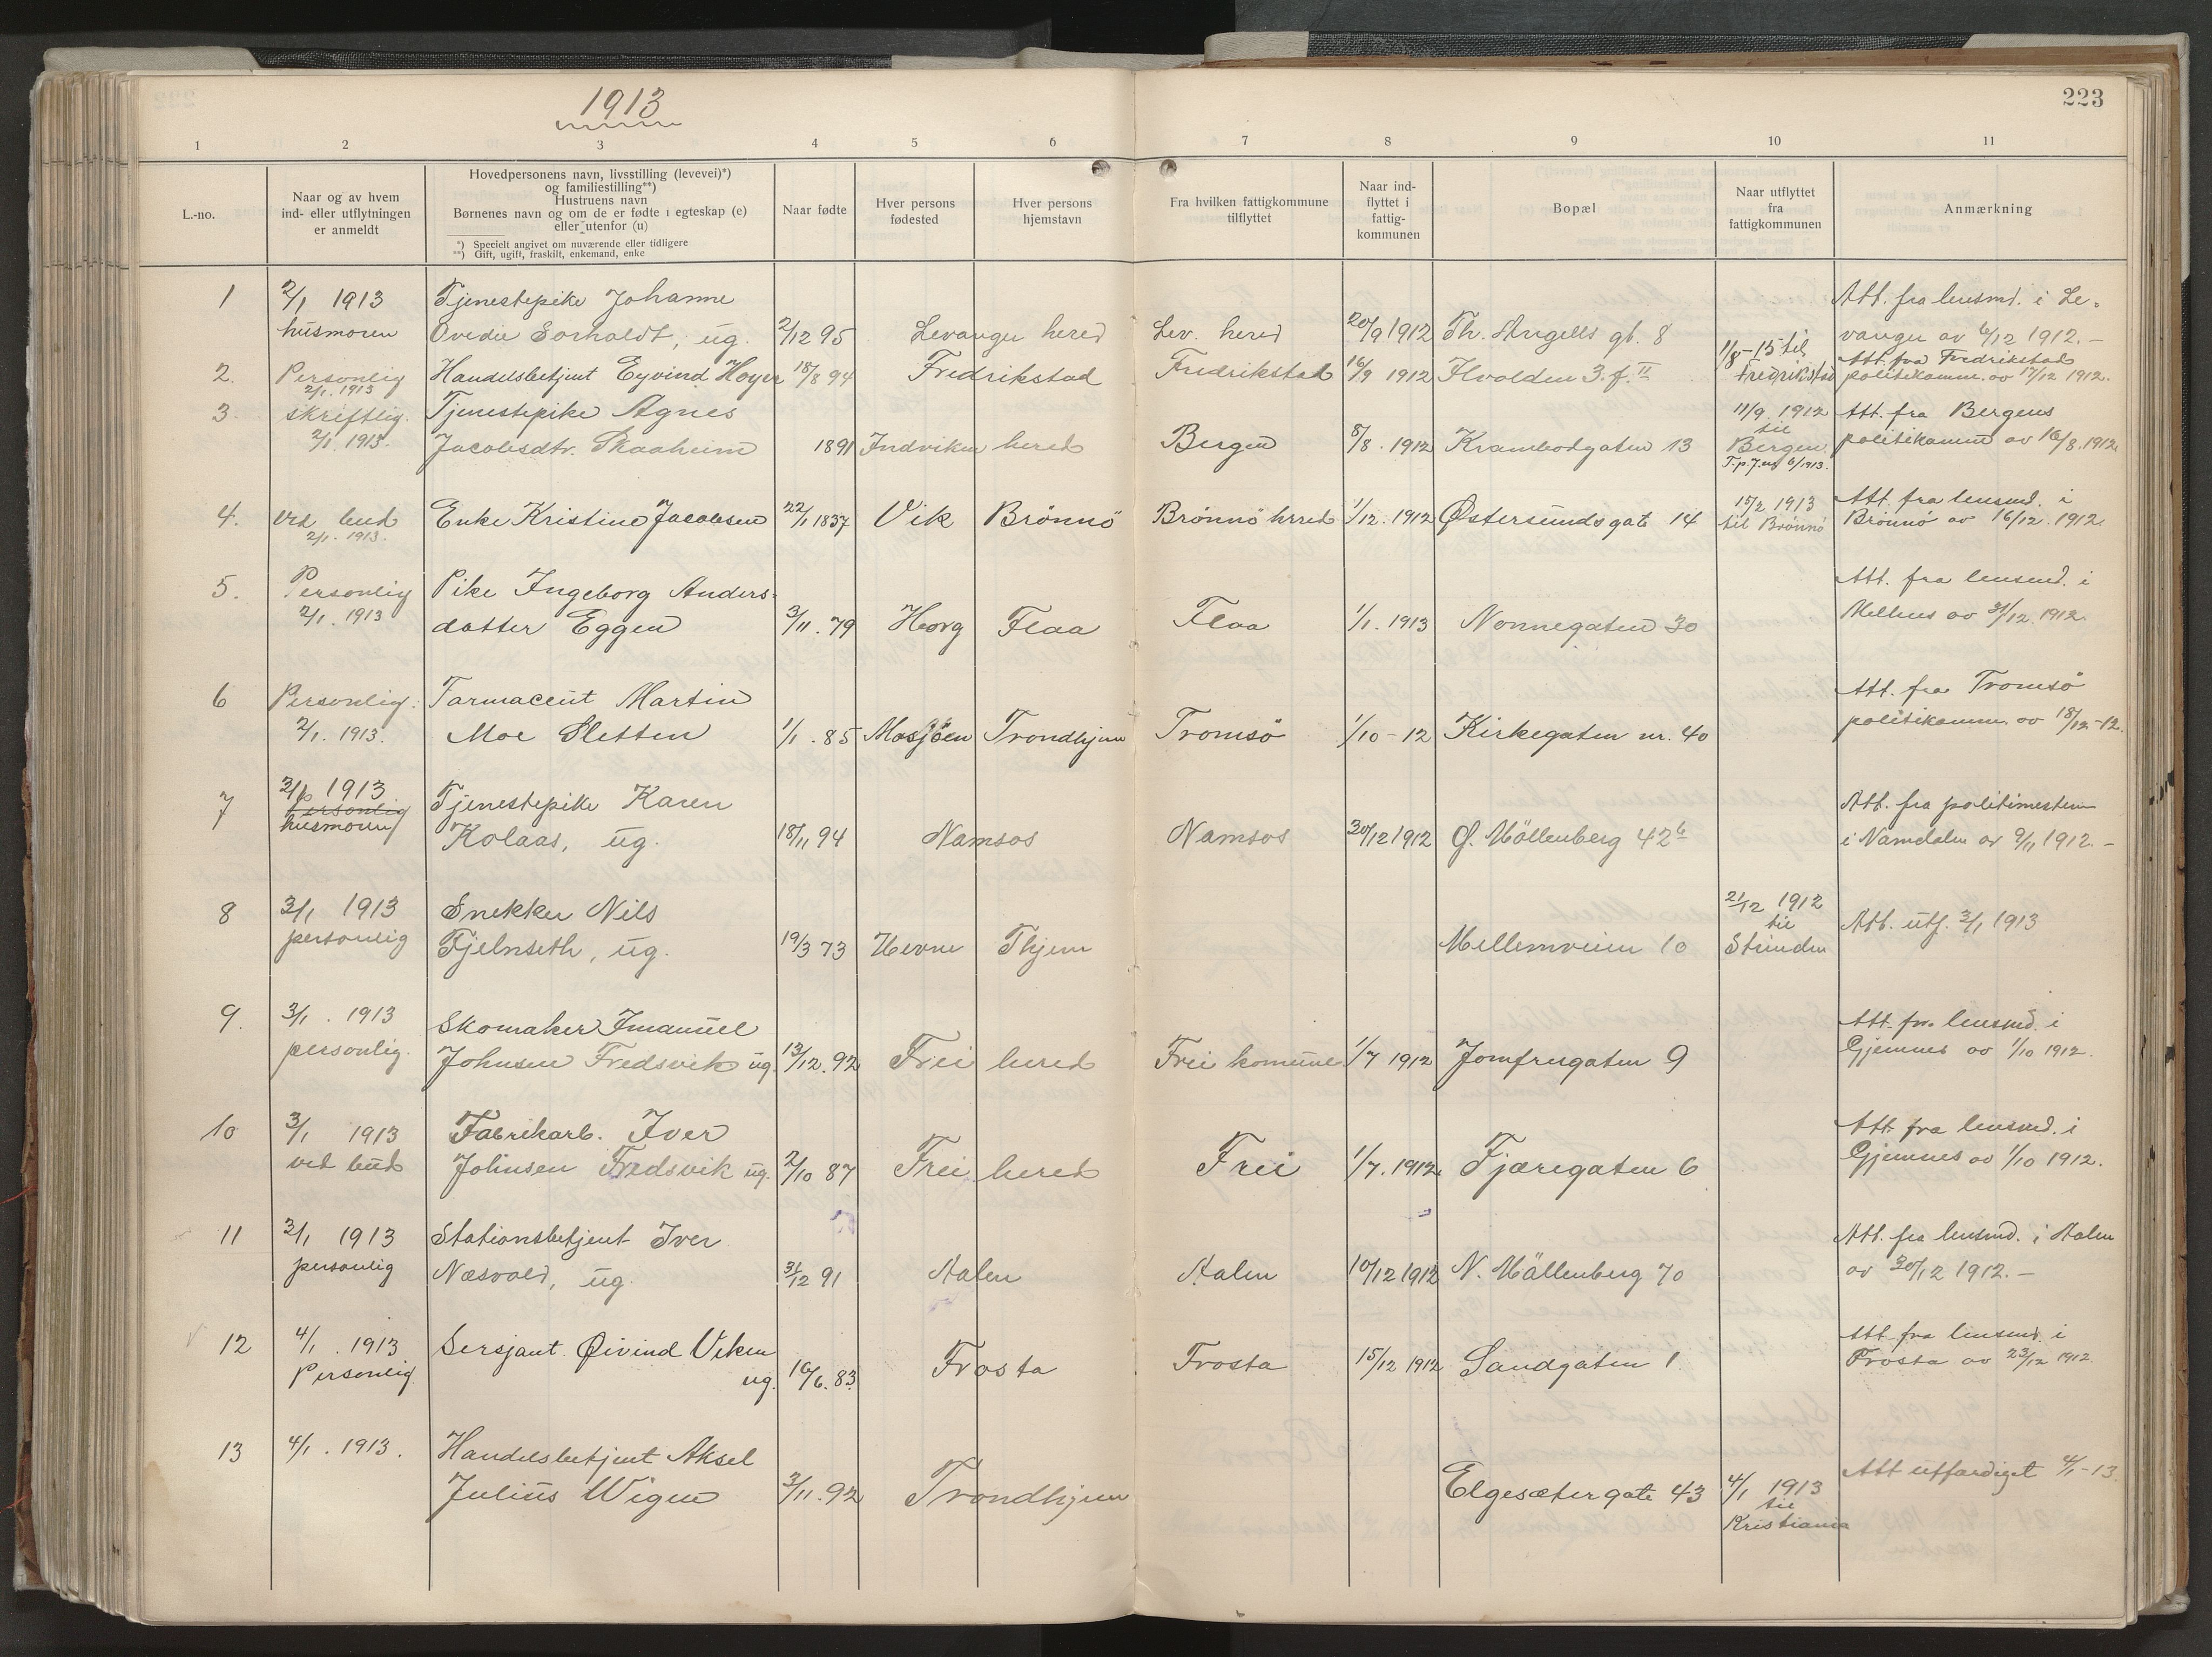 1913
223
1 2 3 4 5 6 7 8 9 10 11
L.-no.
Naar og av hvem
ind- eller utflytningen
er anmeldt
Hovedpersonens navn, livsstilling (levevei)*)
og familiestilling**)
Hustruens navn
Børnenes navn og om de er fødte i egteskap (e)
eller utenfor (u)
*) Specielt angivet om nuværende eller tidligere
**) Gift, ugift, fraskilt, enkemand, enke
Naar fødte
Hver persons
fødested
Hver persons
hjemstavn
Fra hvilken fattigkommune
tilflyttet
Naar ind-
flyttet i
fattig-
kommunen
Bopæl
Naar utflyttet
fra
fattigkommunen
Anmærkning
1 2/1 1913 Tjenestepike Johanne Att. fra lensmd. i Le-
husmoren Ovedie Sorholdt, ug. 2/12 95 Levanger hered Lev. hered 20/9 1912 Th. Angells gt. 8 vanger av 6/12 1912. -
2. Personlig Handelsbetjent Eyvind Høyer 18/8 94 Fredrikstad Fredrikstad 16/9 1912 Ilvolden 3. f. II 1/8-15 til Att. fra Fredrikstad
2/1. 1913 Fredrikstad politikamme. av 17/12 1912.
3. skriftlig. Tjenestepike Agnes 11/9. 1912 Att. fra Bergens
2/1. 1913. Jacobsdtr. Skaaheim 1891 Indviken hered Bergen 8/8. 1912 Krambodgaten 13 til Bergen. politikamme av 16/8. 1912.
T.p.J. nr 6/1913.
4. ved bud Enke Kristine Jacobsen 22/1 1837 Vik Brønnö Brönnö hrred 1/12. 1912 Østersundsgate 14 15/2 1913 Att. fra lensmd. i
2/1. 1913. til Brönnö Brönnö av 16/12. 1912.
5. Personlig Pike Ingeborg Anders- Att. fra lensmd. i
2/1. 1913 datter Eggen 3/11. 79 Horg Flaa Flaa 1/1. 1913 Nonnegaten 30 Melhus av 31/12. 1912.
6 Personlig. Farmaceut Martin Att. fra Tromsö
2/1. 1913. Moe Sletten 1/1. 85 Mosjöen Trondhjem Tromsö 1/10-12 Kirkegaten nr. 40 politikamm. av 18/12-12.
7 3/1 1913 Tjenestepike Karen Att. fra politimesteren
personlig
husmoren Kolaas, ug. 18/11 94 Namsos Namsos 30/12 1912 Ø. Möllenberg 42b i Namdalen av 9/11 1912. -
8 3/1 1913 Snekker Nils 21/12 1912
personlig Fjelnseth, ug. 19/3 73 Hevne Thjem Mellemveien 10 til Strinden Att. utf. 3/1 1913
9. 3/1. 1913 Skomaker Imanuel Att. fra lensmd. i
personlig. Johnsen Fredsvik ug. 13/12. 92 Frei hered Frei komune 1/7 1912 Jomfrugaten 9 Gjemnes av 1/10 1912.
10 3/1 1913 Fabrikarb. Iver Att. fra lensmd. i
ved bud Johnsen Fredsvik ug. 2/10 87 Frei hered Frei 1/7. 1912. Fjæregaten 6 Gjemnes av 1/10 1912.
11 3/1 1913 Stationsbetjent Iver Att. fra lensmd. i Aalen
personlig Næsvold, ug. 31/12 91 Aalen Aalen 10/12 1912 N. Möllenberg 70 av 30/12 1912. -
12 4/1. 1913 Sersjant Øivind Viken Att. fra lensmd. i
Personlig. ug. 16/6. 83. Frosta Frosta 15/12 1912 Sandgaten 1 Frosta av 23/12 1912.
13 4/1. 1913. Handelsbetjent Aksel Att utfærdiget 4/1-13.
Julius Wigen 3/11. 92 Trondhjem Elgesætergate 43 4/1 1913
til
Kristiania